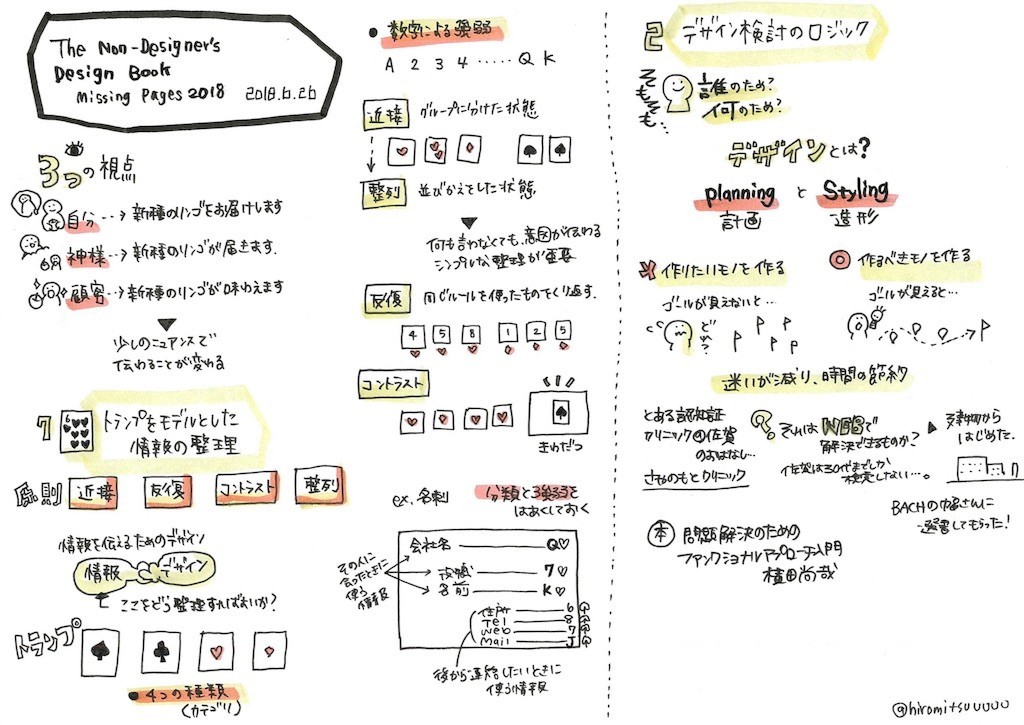 The Non-Designer's
Design Book
Missing Pages 2018 2018.6.26
3つの視点
自分 --→ 新種のリンゴをお届けします
神様 --→ 新種のリンゴが届きます.
顧客 --→ 新種のリンゴが味わえます
少しのニュアンスで
伝わることが変わる
トランプをモデルとした
情報の整理
原則 近接 反復 コントラスト 整列
情報を伝えるためのデザイン
情報 デザイン
ここをどう整理すればよいか?
トランプ
● 4つの種類
(カテゴリ)
● 数字による強弱
A 2 3 4 ..... Q K
近接 グループに分けた状態
整列 並びかえをした状態
何も言わなくても、意図が伝わる
シンプルな整理が重要
反復 同じルールを使ったものでくり返す.
4 5 8 1 2 5
コントラスト
きわだつ
ex. 名刺 分類と強弱を
はあくしておく
その人に
会ったときに
使う
情報
会社名 Q♡
役職 7♡
名前 K♡
住所 6
Tel 8
Web 7
Mail J
後から連絡したいときに
使う情報
2 デザイン検討のロジック
そもそも...
誰のため?
何のため?
デザインとは?
planning と Styling
計画 造形
作りたいモノを作る
ゴールが見えないと...
どれ?
◎ 作るべきモノを作る
ゴールが見えると...
迷いが減り、時間の節約
とある認知症
クリニック@佐賀
のおはなし...
さやのもとクリニック
それはWEBで
解決できるものか?
佐賀は30代までしか
検索しない...。
建物から
はじめた.
BACHの幅さんに
選書してもらった!
本 問題解決のための
ファンクショナルアプローチ入門
横田尚哉
@hiromitsuuuuu